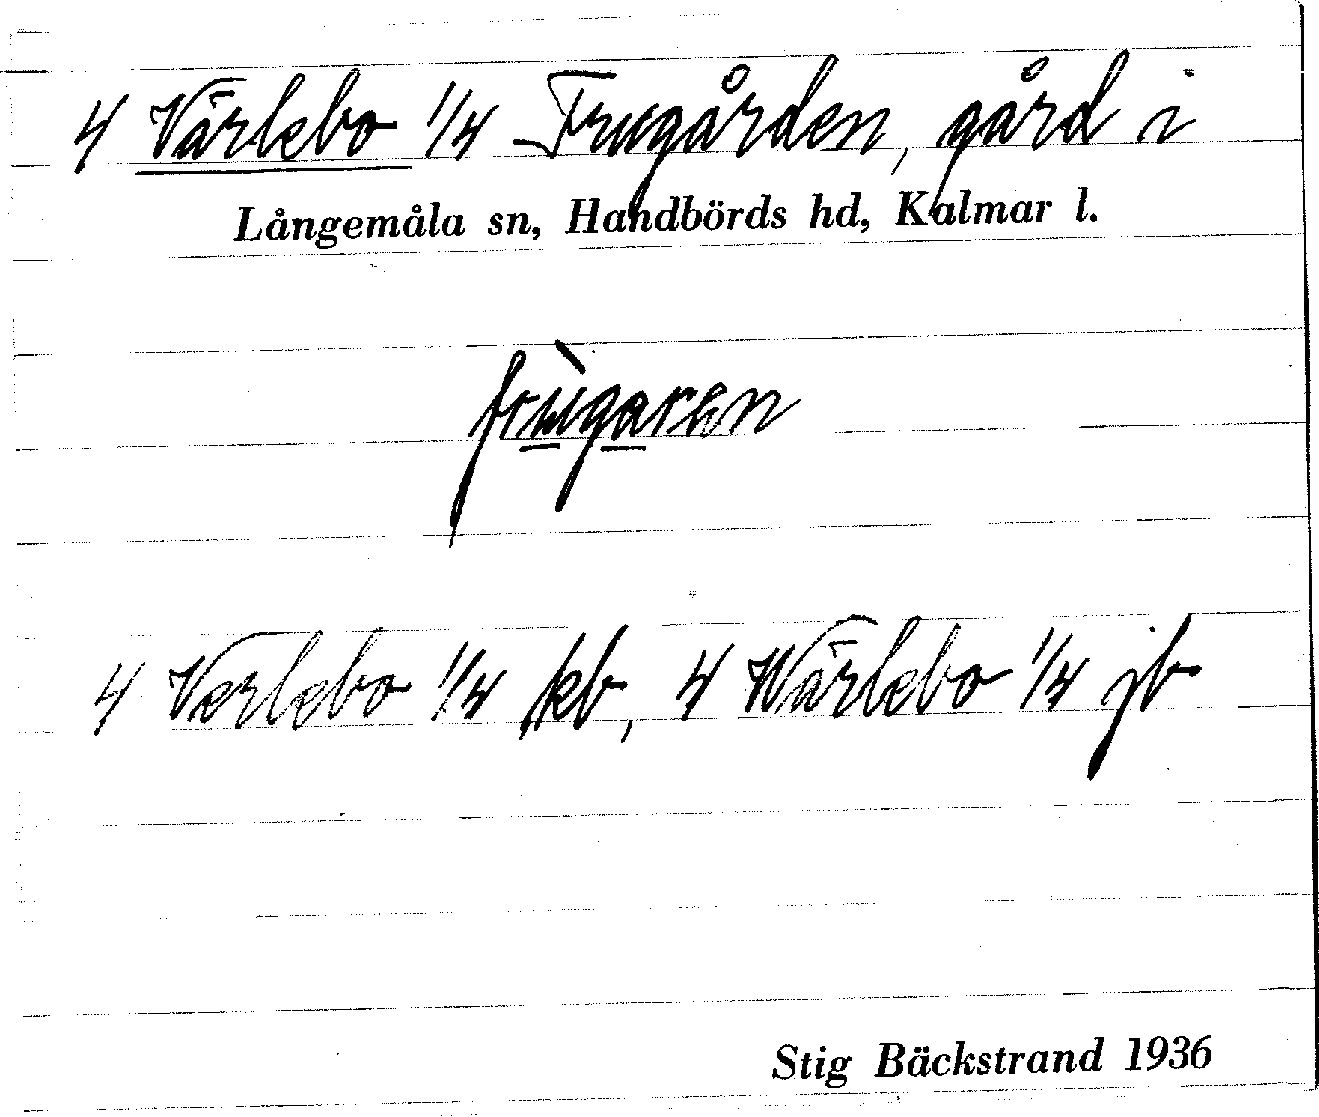 4 Värlebo 1/4 Frugården, gård i
Långemåla sn, Handbörds hd, Kalmar l.
frùgaren
4 Verlebo 1/4 kb, 4 Wärlebo 1/4 jb
Stig Bäckstrand 1936